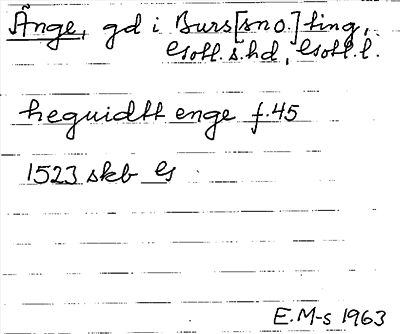 Änge, gd i Burs [sn o.] ting,
Gotl. s. hd, Gotl. l.
heguidtt enge f. 45
1523 skb G
E.M-s 1963